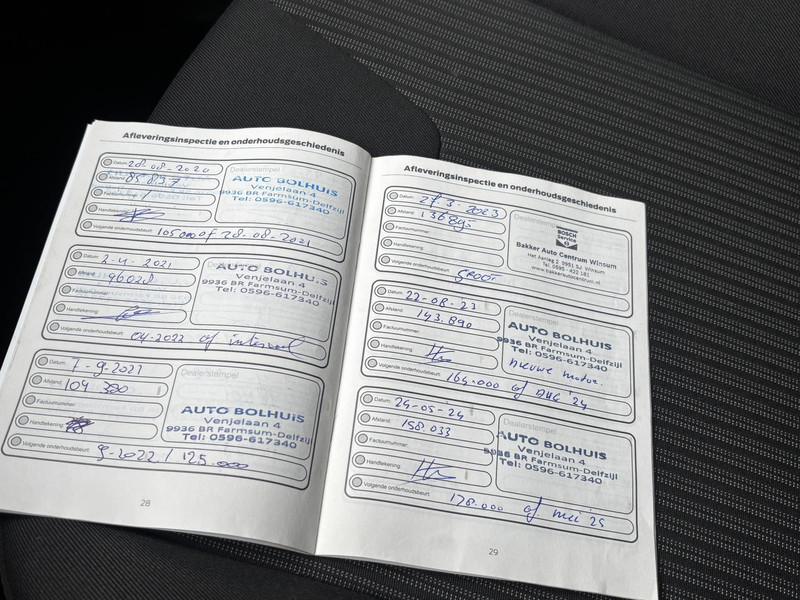 Afleveringsinspectie en onderhoudsgeschiedenis
Datum: 28-08-2020
Afstand: 85837
Factuurnummer:
Handtekening:
Volgende onderhoudsbeurt: 105000 of 28-08-2021
Dealerstempel
AUTO BOLHUIS
Venjelaan 4
9936 BR Farmsum-Delfzijl
Tel: 0596-617340
Datum: 2-4-2021
Afstand: 96028
Factuurnummer:
Handtekening:
Volgende onderhoudsbeurt: 04-2022 of interval
Dealerstempel
AUTO BOLHUIS
Venjelaan 4
9936 BR Farmsum-Delfzijl
Tel: 0596-617340
Datum: 7-9-2021
Afstand: 104 390
Factuurnummer:
Handtekening:
Volgende onderhoudsbeurt: 9-2022 / 125.000
Dealerstempel
AUTO BOLHUIS
Venjelaan 4
9936 BR Farmsum-Delfzijl
Tel: 0596-617340
28
Afleveringsinspectie en onderhoudsgeschiedenis
Datum: 27-3-2023
Afstand:
Factuurnummer:
Handtekening:
Volgende onderhoudsbeurt: GROOT
Dealerstempel
BOSCH
Service
Bakker Auto Centrum Winsum
Het Aanleg 2 9951 SJ Winsum
Tel. 0595 - 422 181
www.bakkerautocentrum.nl
Datum: 22-08-23
Afstand: 143.890
Factuurnummer:
Handtekening:
Volgende onderhoudsbeurt: 164.000 of AUG '24
Dealerstempel
AUTO BOLHUIS
Venjelaan 4
9936 BR Farmsum-Delfzijl
Tel: 0596-617340
nieuwe motor.
Datum: 24-05-24
Afstand: 158.033
Factuurnummer:
Handtekening:
Volgende onderhoudsbeurt: 178.000 of mei '25
Dealerstempel
AUTO BOLHUIS
Venjelaan 4
9936 BR Farmsum-Delfzijl
Tel: 0596-617340
29